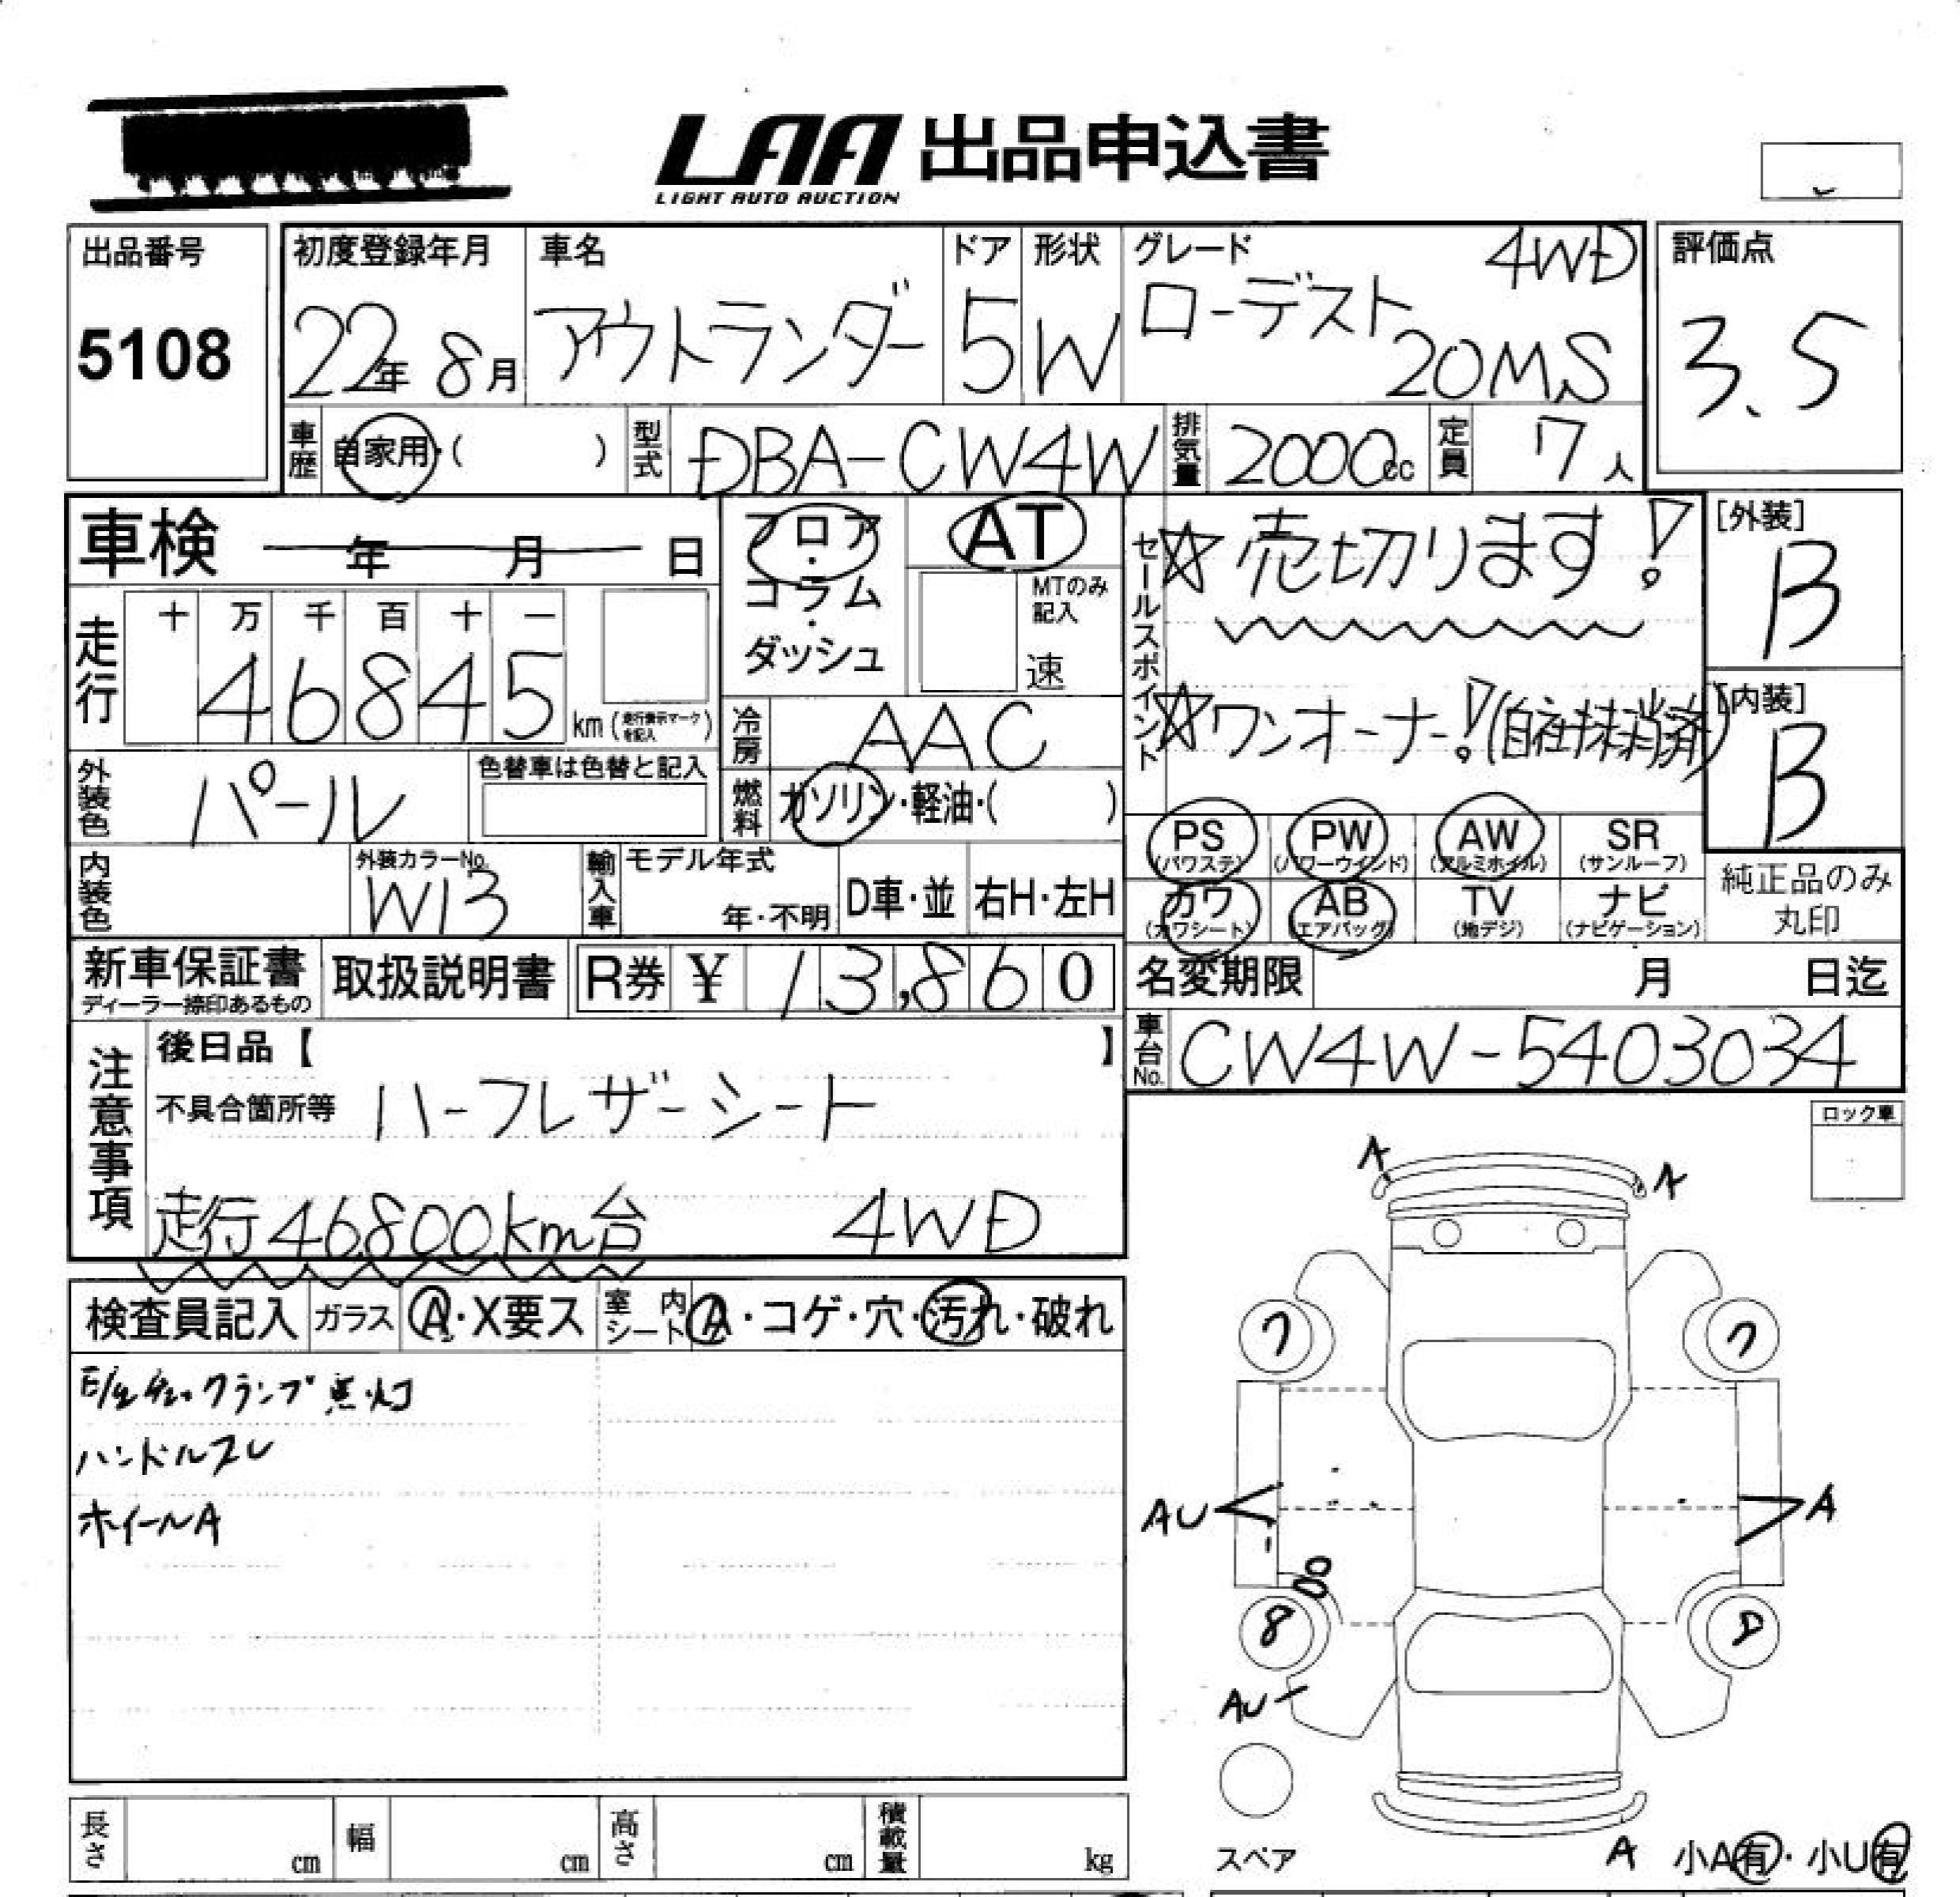 LAA 出品申込書
LIGHT AUTO AUCTION
出品番号
5108
初度登録年月
22年 8月
車名
アウトランダー
ドア
5
形状
W
グレード
4WD
ローデスト
20MS
評価点
3.5
車歴 自家用・( )
型式 DBA-CW4W
排気量 2000cc
定員 7人
車検 年 月 日
フロア・コラム・ダッシュ
AT
MTのみ記入
速
セールスポイント
☆売切ります!
☆ワンオーナー!(自社抹消済)
[外装]
B
[内装]
B
走行
十 万 千 百 十 一
46845 km(走行表示マークを記入)
冷房 AAC
外装色 パール
色替車は色替と記入
燃料 ガソリン・軽油・( )
PS (パワステ)
PW (パワーウインド)
AW (アルミホイル)
SR (サンルーフ)
カワ (カワシート)
AB (エアバッグ)
TV (地デジ)
ナビ (ナビゲーション)
純正品のみ
丸印
内装色
外装カラーNo.
W13
輸入車
モデル年式
年・不明
D車・並
右H・左H
新車保証書
ディーラー捺印あるもの
取扱説明書
R券 ¥ 13,860
名変期限 月 日迄
車台No. CW4W-5403034
注意事項
後日品【 】
不具合箇所等 ハーフレザーシート
走行46800km台 4WD
ロック車
検査員記入
ガラス A・X要ス
室内シート A・コゲ・穴・汚れ・破れ
E/gチェックランプ点灯
ハンドルスレ
ホイールA
A
A
7
7
AU
A
8
8
AU
スペア
A 小A有・小U有
長さ cm
幅 cm
高さ cm
積載量 kg